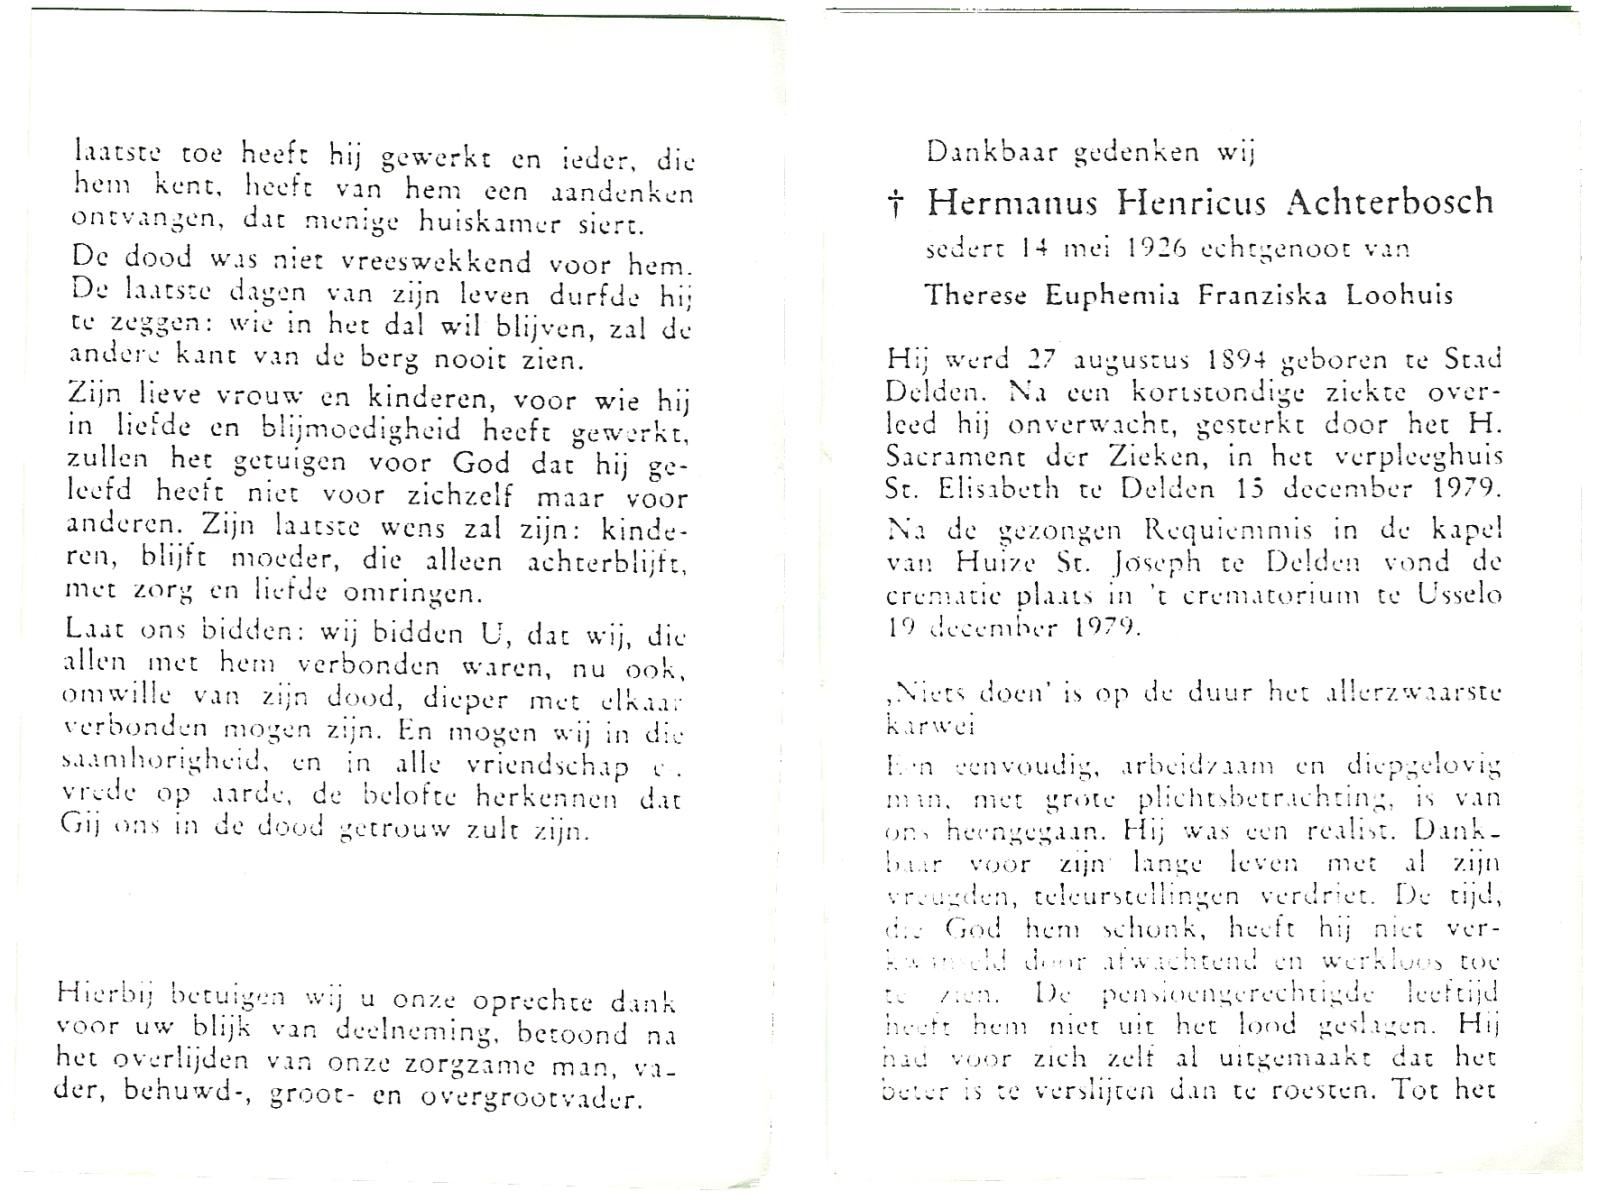 Dankbaar gedenken wij
† Hermanus Henricus Achterbosch
sedert 14 mei 1926 echtgenoot van
Therese Euphemia Franziska Loohuis
Hij werd 27 augustus 1894 geboren te Stad
Delden. Na een kortstondige ziekte over-
leed hij onverwacht, gesterkt door het H.
Sacrament der Zieken, in het verpleeghuis
St. Elisabeth te Delden 15 december 1979.
Na de gezongen Requiemmis in de kapel
van Huize St. Joseph te Delden vond de
crematie plaats in 't crematorium te Usselo
19 december 1979.
‚Niets doen' is op de duur het allerzwaarste
karwei
Een eenvoudig, arbeidzaam en diepgelovig
man, met grote plichtsbetrachting, is van
ons heengegaan. Hij was een realist. Dank-
baar voor zijn lange leven met al zijn
vreugden, teleurstellingen verdriet. De tijd,
die God hem schonk, heeft hij niet ver-
kwanseld door afwachtend en werkloos toe
te zien. De pensioengerechtigde leeftijd
heeft hem niet uit het lood geslagen. Hij
had voor zich zelf al uitgemaakt dat het
beter is te verslijten dan te roesten. Tot het
laatste toe heeft hij gewerkt en ieder, die
hem kent, heeft van hem een aandenken
ontvangen, dat menige huiskamer siert.
De dood was niet vreeswekkend voor hem.
De laatste dagen van zijn leven durfde hij
te zeggen: wie in het dal wil blijven, zal de
andere kant van de berg nooit zien.
Zijn lieve vrouw en kinderen, voor wie hij
in liefde en blijmoedigheid heeft gewerkt,
zullen het getuigen voor God dat hij ge-
leefd heeft niet voor zichzelf maar voor
anderen. Zijn laatste wens zal zijn: kinde-
ren, blijft moeder, die alleen achterblijft,
met zorg en liefde omringen.
Laat ons bidden: wij bidden U, dat wij, die
allen met hem verbonden waren, nu ook,
omwille van zijn dood, dieper met elkaar
verbonden mogen zijn. En mogen wij in die
saamhorigheid, en in alle vriendschap
vrede op aarde, de belofte herkennen dat
Gij ons in de dood getrouw zult zijn.
Hierbij betuigen wij u onze oprechte dank
voor uw blijk van deelneming, betoond na
het overlijden van onze zorgzame man, va-
der, behuwd-, groot- en overgrootvader.